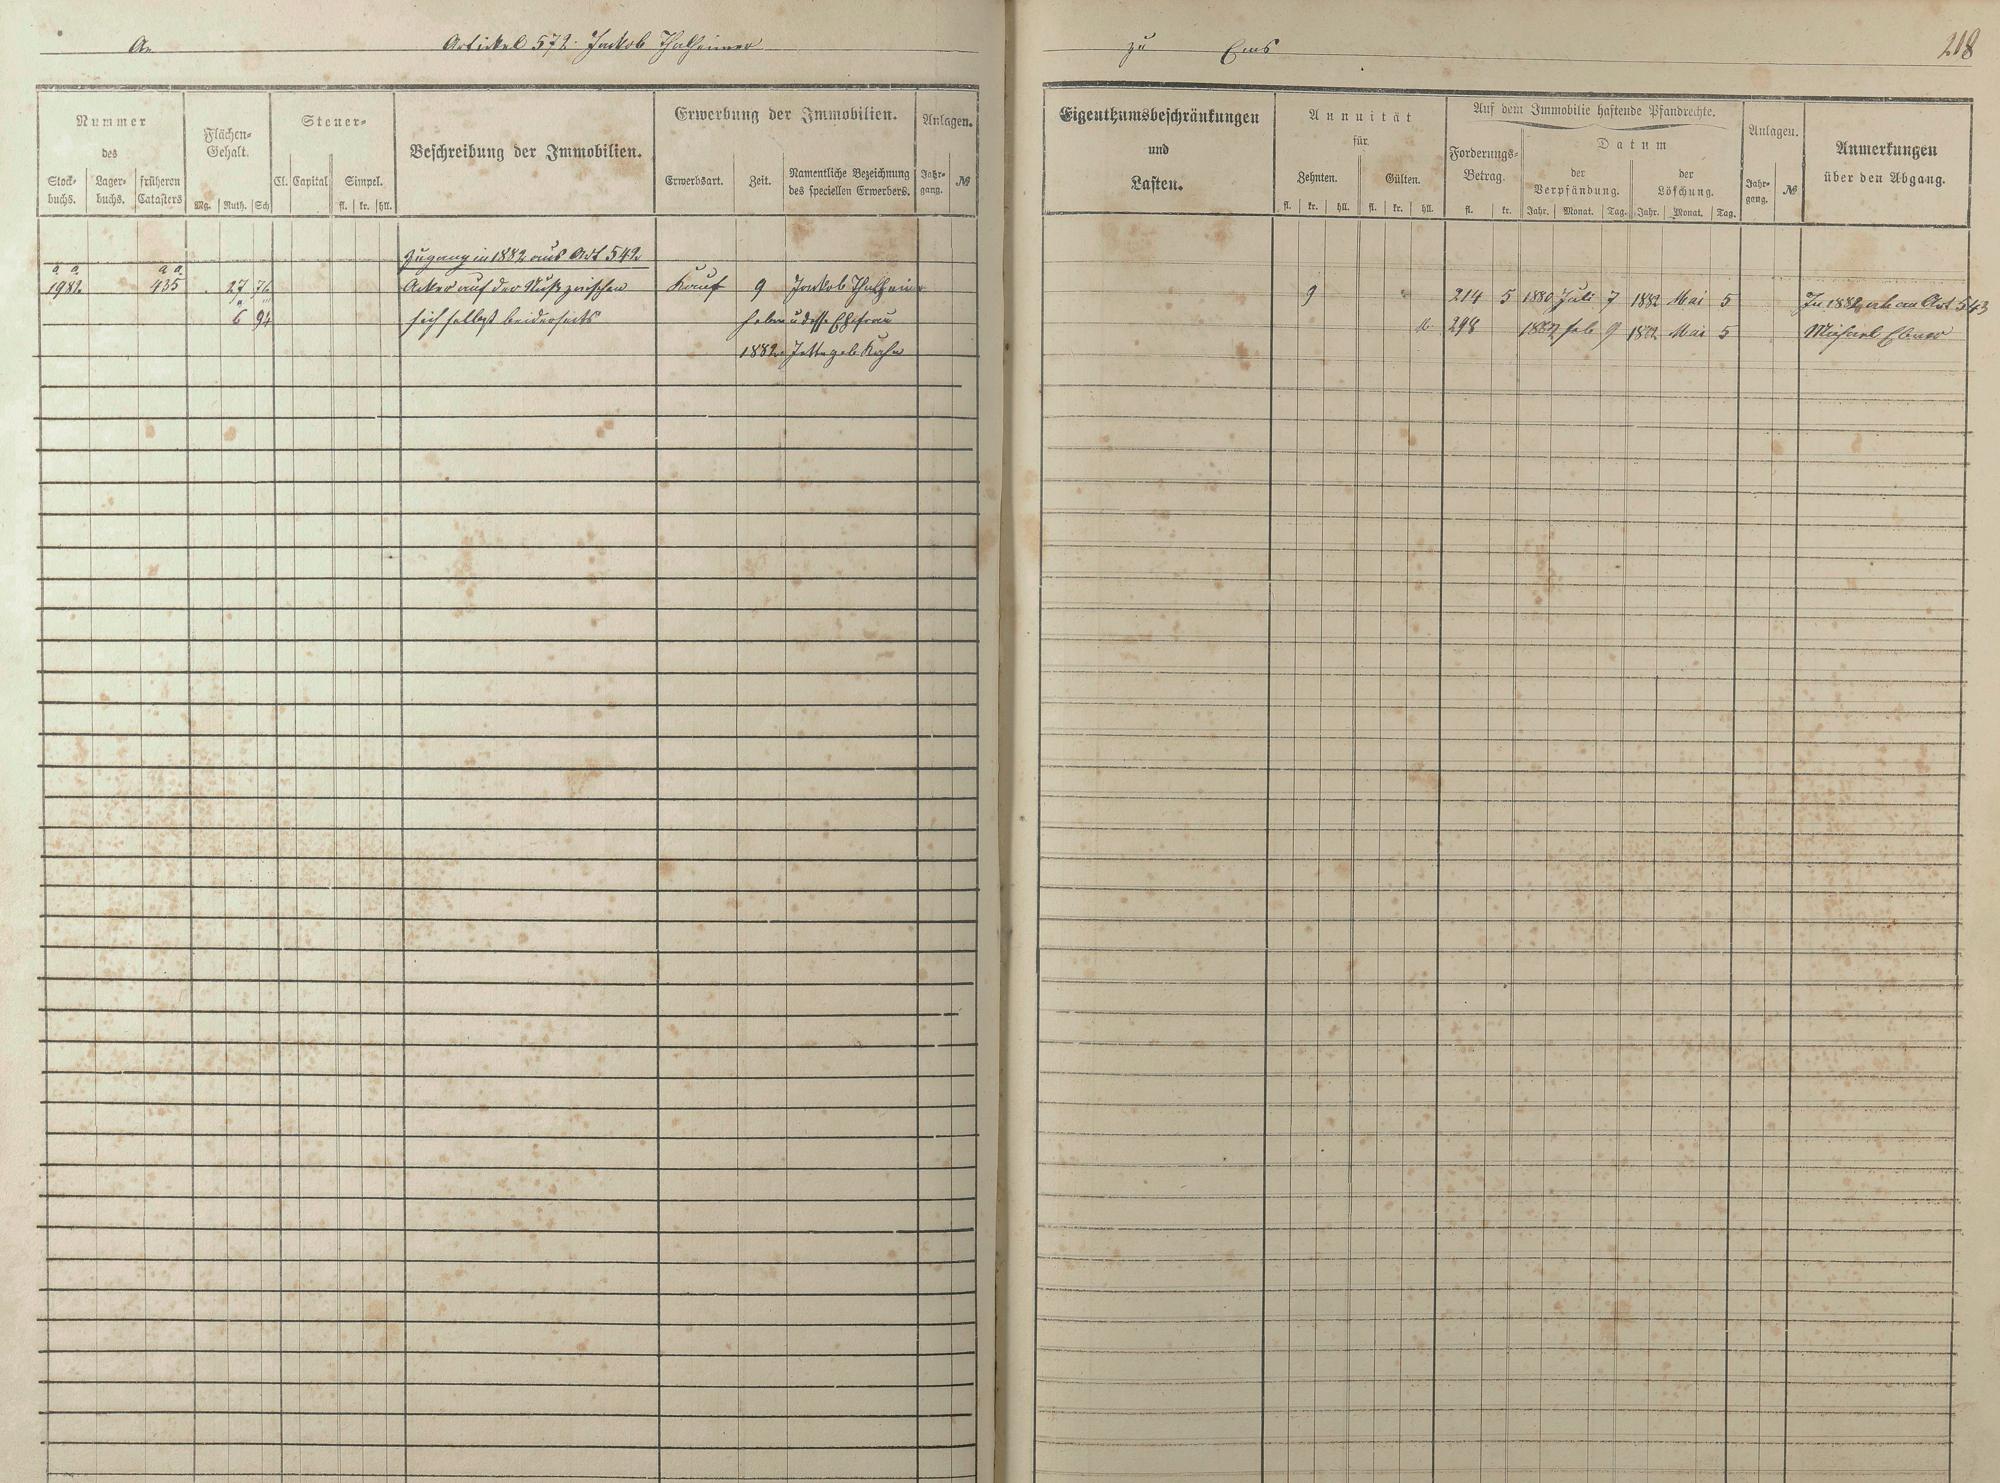 Artikel 572. Jakob Thalheimer
zu Ems
218
Nummer
des
Stock-
buchs.
Lager-
buchs.
früheren
Catasters
Flächen-
Gehalt.
Mg. Ruth. Sch
Steuer-
Cl. Capital Simpel.
fl. kr. hll.
Beschreibung der Immobilien.
Erwerbung der Immobilien.
Erwerbsart. Zeit.
Namentliche Bezeichnung
des speciellen Erwerbers.
Anlagen.
Jahr-
gang.
№
Eigenthumsbeschränkungen
und
Lasten.
Annuität
für
Zehnten. Gülten.
fl. kr. hll. fl. kr. hll.
Auf dem Immobilie haftende Pfandrechte.
Forderungs-
Betrag.
fl. kr.
Datum
der
Verpfändung.
Jahr. Monat. Tag.
der
Löschung.
Jahr. Monat. Tag.
Anlagen.
Jahr-
gang.
№
Anmerkungen
über den Abgang.
Zugang in 1882 aus Art 542
a a a a
1982 435 27 Acker auf der Nuß zwischen Kauf 9 Jakob Thalheimer
6 94 sich selbst beiderseits Febr u dess Ehefrau
1882 Jette geb Kahn
9 214 5 1880 Juli 7 1882 Mai 5 In 1882 ab an Art 543
298 Feb 9 1882 Mai 5 Michael